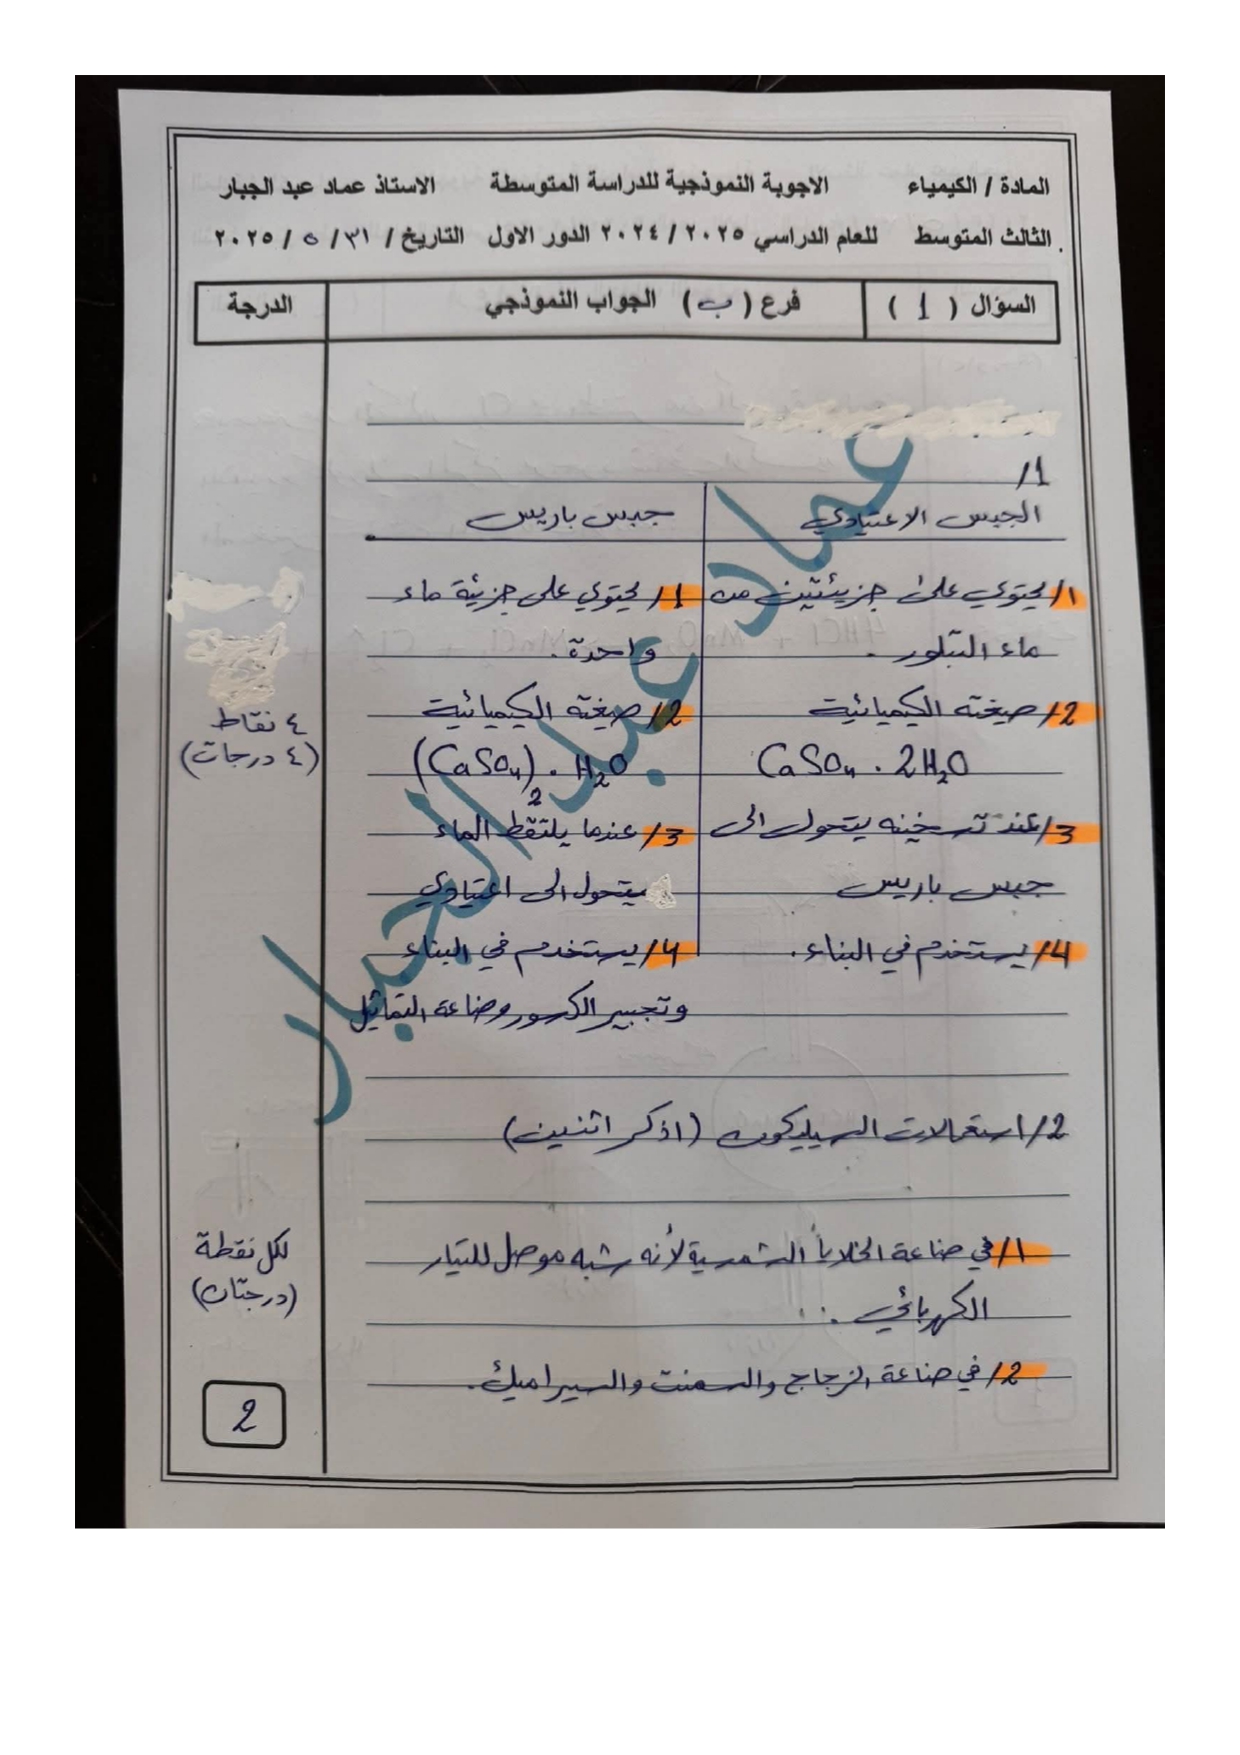 المادة / الكيمياء الاجوبة النموذجية للدراسة المتوسطة الاستاذ عماد عبد الجبار
الثالث المتوسط للعام الدراسي ٢٠٢٤/٢٠٢٥ الدور الاول التاريخ / ٣١ / ٥ / ٢٠٢٥
السؤال ( 1 ) فرع ( ب ) الجواب النموذجي الدرجة
1/
الجبس الاعتيادي جبس باريس
1/ يحتوي على جزيئتين من 1/ يحتوي على جزيئة ماء
ماء التبلور . واحدة .
2/ صيغته الكيميائية 2/ صيغته الكيميائية
٤ نقاط
CaSO₄ . 2H₂O (CaSO₄)₂ . H₂O
(٤ درجات)
3/ عند تسخينه يتحول الى 3/ عندما يلتقط الماء
جبس باريس يتحول الى اعتيادي
4/ يستخدم في البناء . 4/ يستخدم في البناء
وتجبير الكسور وصناعة التماثيل
عماد عبد الجبار
2/ استعمالات السيليكون (اذكر اثنين)
1/ في صناعة الخلايا الشمسية لأنه شبه موصل للتيار
لكل نقطة
الكهربائي .
(درجتان)
2/ في صناعة الزجاج والسمنت والسيراميك .
2